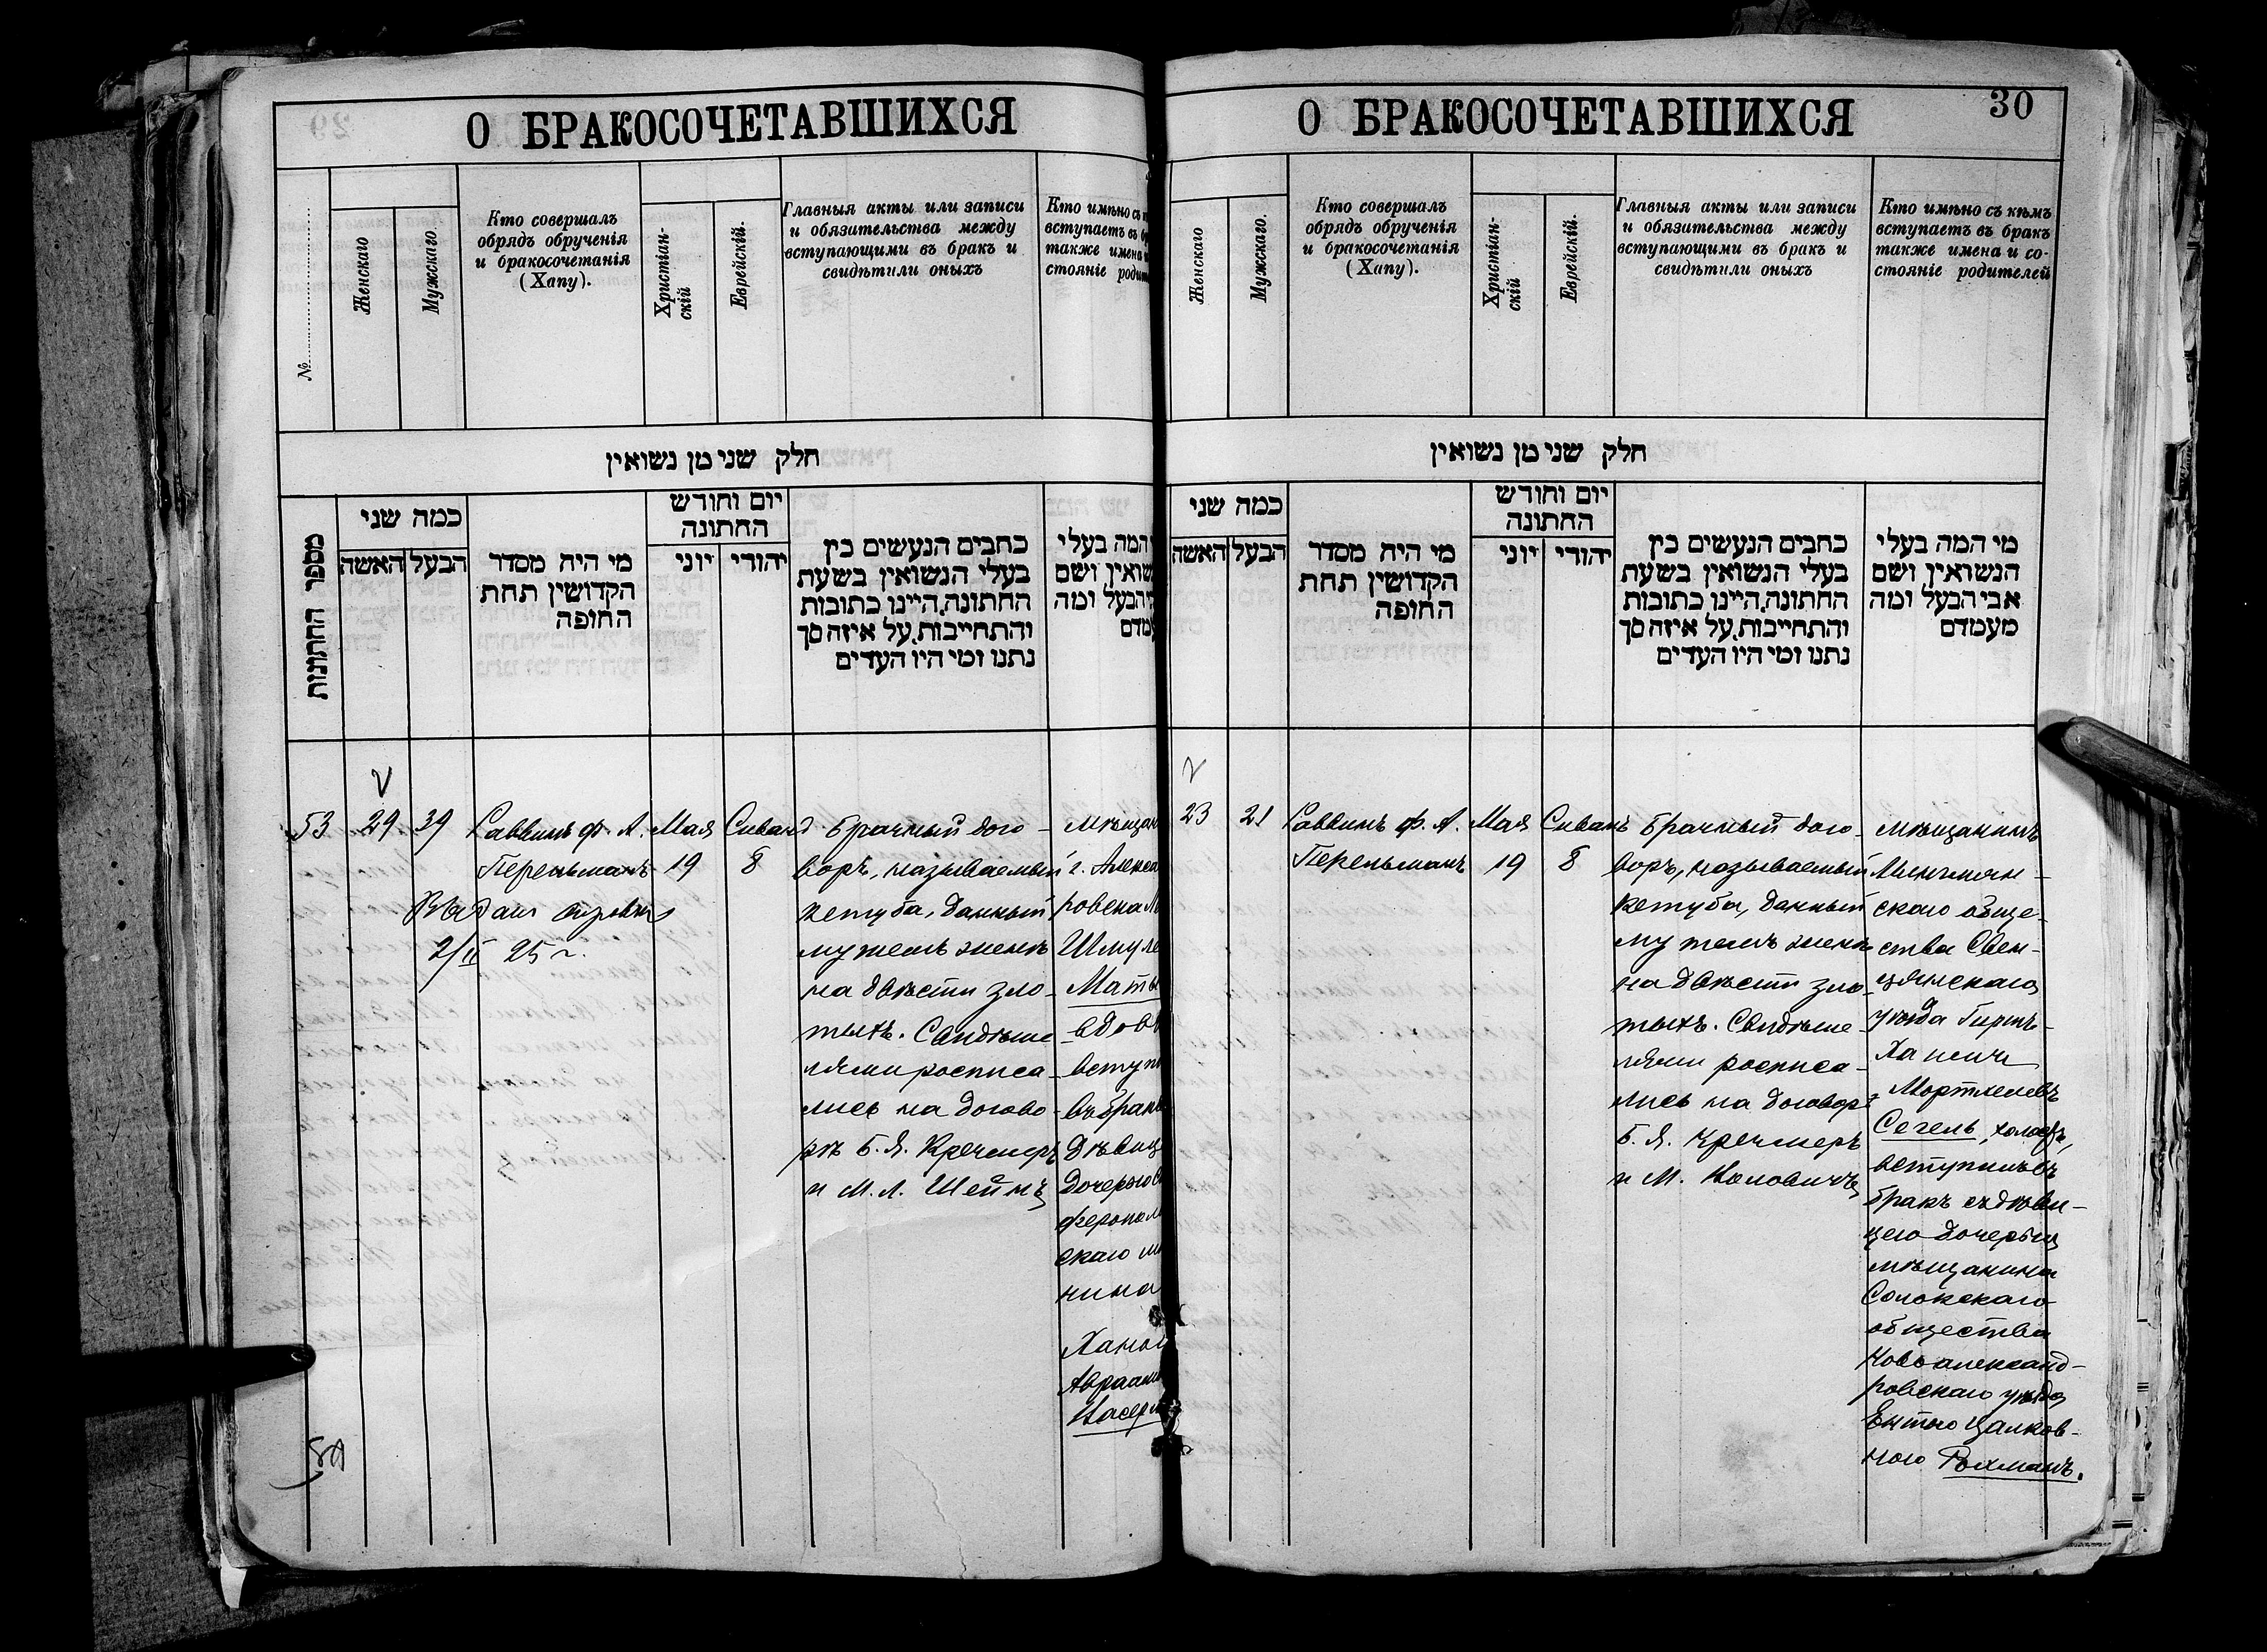 О БРАКОСОЧЕТАВШИХСЯ
№
Женскаго
Мужскаго.
Кто совершалъ
обрядъ обрученія
и бракосочетанія
(Хапу).
Христіан-
скій
Еврейскій.
Главныя акты или записи
и обязательства между
вступающими въ бракъ и
свидѣтили оныхъ
Кто имѣно съ
вступаетъ въ
также имена
стояніе
חלק שני מן נשואין
מספר החתונות
כמה שני
האשה
הבעל
מי היה מסדר
הקדושין תחת
החופה
יום וחודש
החתונה
יוני
יהודי
כתבים הנעשים בין
בעלי הנשואין בשעת
החתונה, היינו כתובות
והתחייבות, על איזה סך
נתנו ומי היו העדים
המה בעלי
ושם
הבעל ומה
53
29
39
Раввинъ Ф. А.
Перельманъ
Мая
19
8
Брачный дого-
воръ, называемый
кетуба, данный
мужемъ женѣ
на двѣсти зло-
тыхъ. Свидѣте
лями росписа-
лись на догово-
рѣ Б. Я. Кречмеръ
и М. Л. Шейнъ
г.
2/II 25 г.
О БРАКОСОЧЕТАВШИХСЯ
30
Женскаго
Мужскаго.
Кто совершалъ
обрядъ обрученія
и бракосочетанія
(Хапу).
Христіан-
скій
Еврейскій.
Главныя акты или записи
и обязательства между
вступающими въ бракъ и
свидѣтили оныхъ
Кто имѣно съ кѣмъ
вступаетъ въ бракъ
также имена и со-
стояніе родителей
חלק שני מן נשואין
כמה שני
האשה
הבעל
מי היה מסדר
הקדושין תחת
החופה
יום וחודש
החתונה
יוני
יהודי
כתבים הנעשים בין
בעלי הנשואין בשעת
החתונה, היינו כתובות
והתחייבות, על איזה סך
נתנו ומי היו העדים
מי המה בעלי
הנשואין ושם
אבי הבעל ומה
מעמדם
23
21
Раввинъ Ф. А.
Перельманъ
Мая
19
Сиванъ
8
Брачный дого-
воръ, называемый
кетуба, данный
мужемъ женѣ
на двѣсти зло-
тыхъ. Свидѣте-
лями росписа-
лись на договорѣ
Б. Я. Кречмеръ
и М.
мѣщанинъ
скаго обще-
ства Свен-
цянскаго
уѣзда Гиршъ-
Мортхелевъ
Сегель, холостъ,
вступилъ въ
бракъ съ дѣви-
цею дочерью
мѣщанина
Солокскаго
общества
Новоалександ-
ровскаго уѣзда
Цалков-
ною Рохманъ.